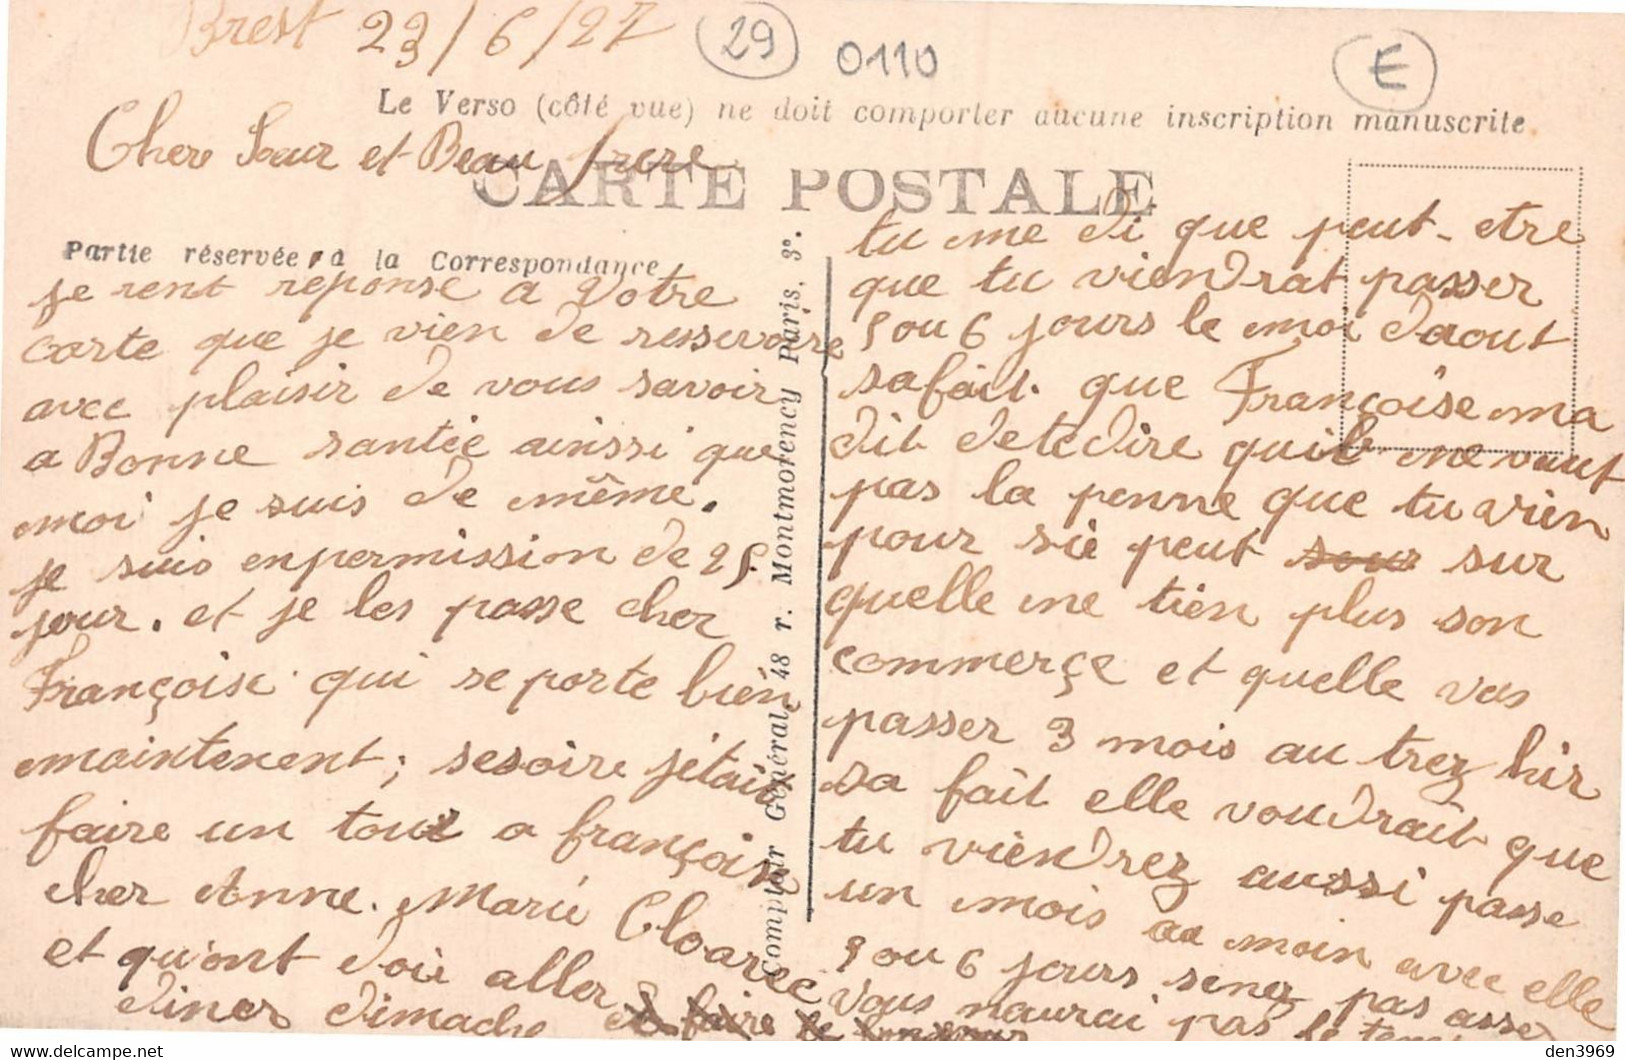 Brest 23/6/27
29
0110
E
Le Verso (côté vue) ne doit comporter aucune inscription manuscrite
Cher Sœur et Beau frere
CARTE POSTALE
Partie réservée à la Correspondance
je rent réponse a Votre
carte que je vien de ressevoire
avec plaisir de vous savoir
a Bonne santée ainssi que
moi je suis de même.
je suis enpermission de 25
jour. et je les passe cher
Françoise qui se porte bién
maintenent; sesoire jétait
faire un tour a françoise
cher Anne. Marié Cloarec
et qu'ont doit aller
diner dimache
Comptoir Général, 48 r. Montmorency Paris. 3e.
tu me di que peut-etre
que tu viendrat passer
5 ou 6 jours le moi daout
safait. que Françoise ma
dit detedire quil me vaut
pas la penne que tu vien
pour sié peut sur
quelle me tién plus son
commerçe et quelle vas
passer 3 mois au trez hir
sa fait elle voudrait que
tu viéndrez aussi passe
un mois au moin avec elle
5 ou 6 jours senez pas assez
vous naurai pas le temp
den3969